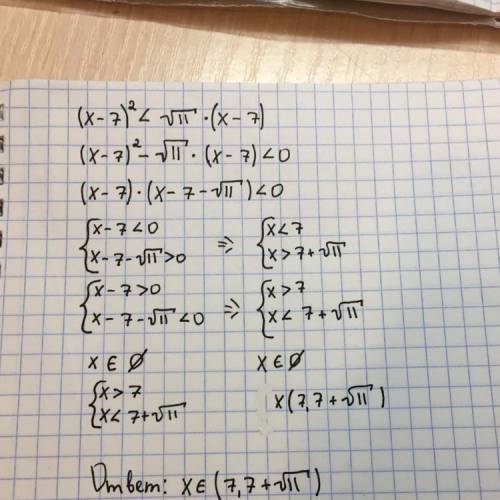 (x-7)² < √11 · (x-7)
(x-7)² - √11 · (x-7) < 0
(x-7) · (x-7-√11) < 0
{x-7<0 => {x<7
{x-7-√11>0 {x>7+√11
{x-7>0 => {x>7
{x-7-√11<0 {x<7+√11
x ∈ ∅ x ∈ ∅
{x>7
{x<7+√11 x(7,7+√11)
Ответ: x ∈ (7,7+√11)